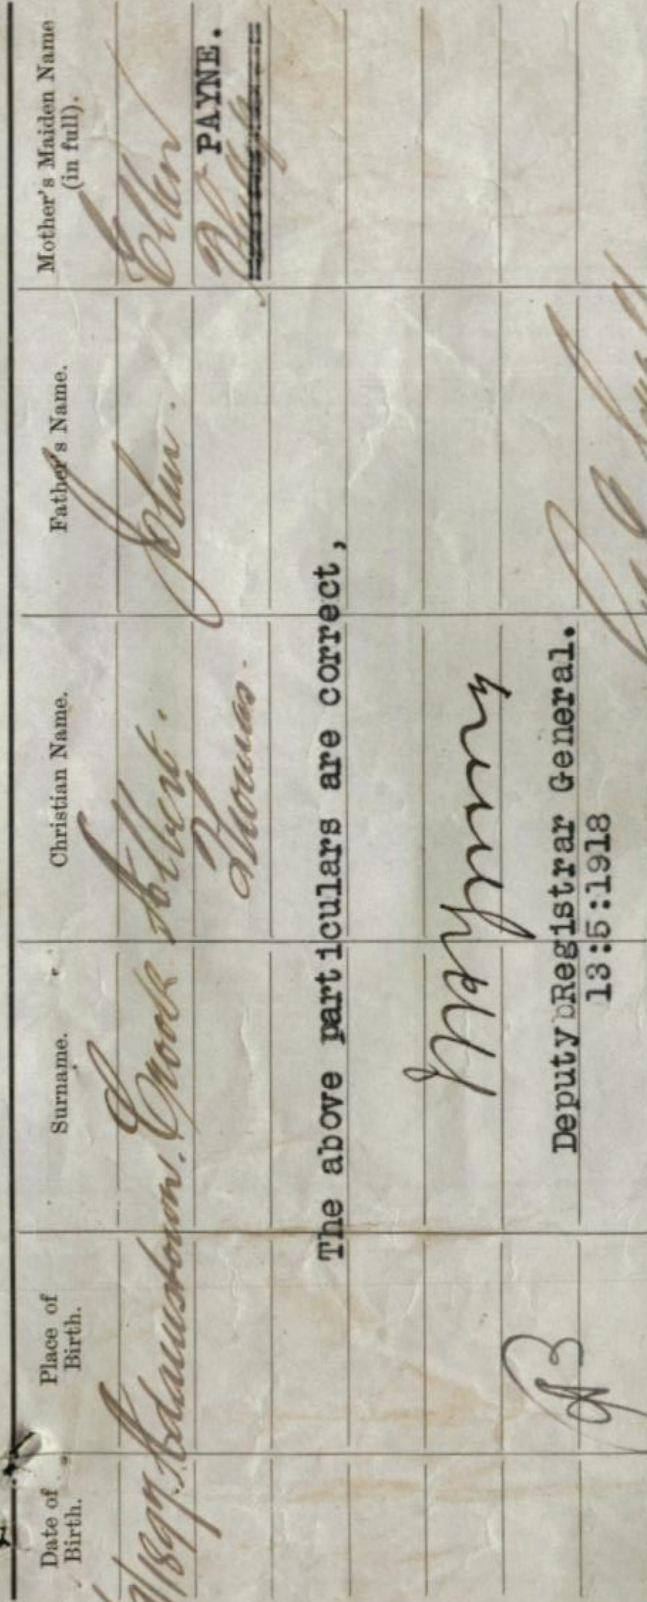 Date of Birth.
Place of Birth.
Surname.
Christian Name.
Father's Name.
Mother's Maiden Name (in full).
/1897. Adamstown. Crook Albert. John. Ellen
Thomas. PAYNE.
The above particulars are correct,
Deputy Registrar General.
13:5:1918